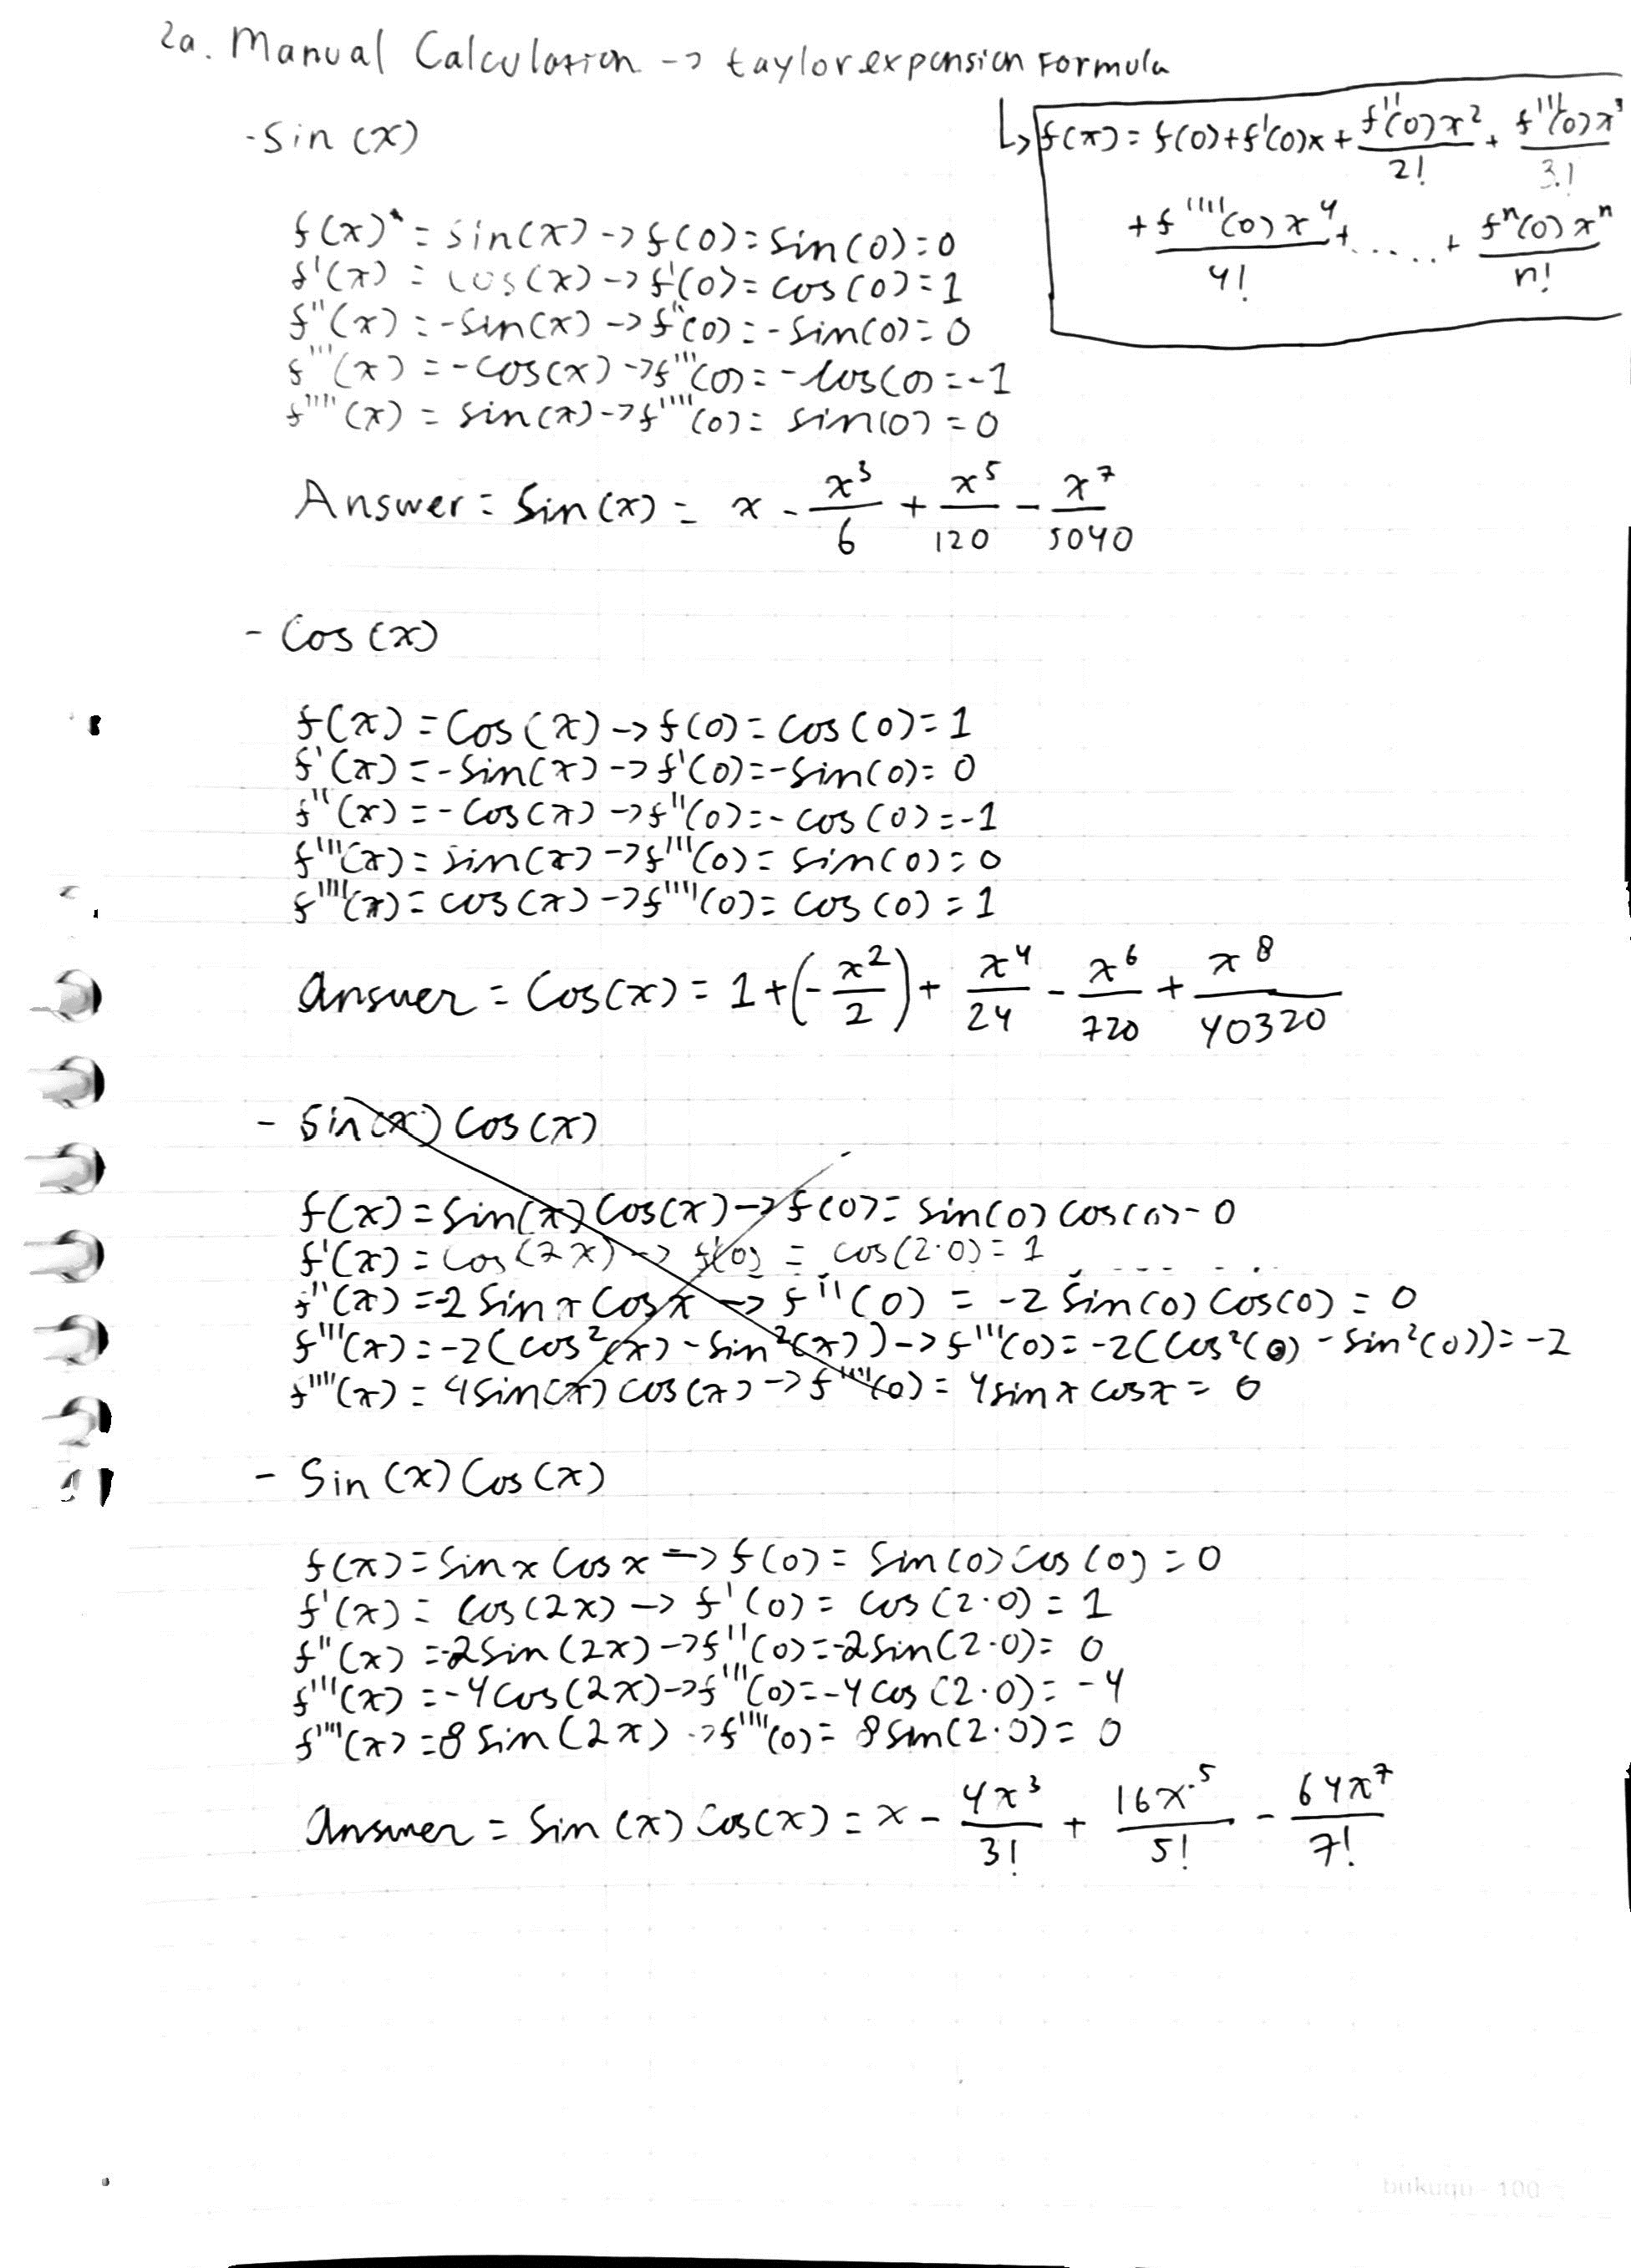 2a. Manual Calculation -> taylor expansion Formula
↳ f(x) = f(0) + f'(0)x + f''(0)x²/2! + f'''(0)x³/3!
+ f''''(0)x⁴/4! + ..... + fⁿ(0)xⁿ/n!
- Sin (x)
f(x) = sin(x) -> f(0) = sin(0) = 0
f'(x) = cos(x) -> f'(0) = cos(0) = 1
f''(x) = -sin(x) -> f''(0) = -sin(0) = 0
f'''(x) = -cos(x) -> f'''(0) = -cos(0) = -1
f''''(x) = sin(x) -> f''''(0) = sin(0) = 0
Answer = Sin(x) = x - x³/6 + x⁵/120 - x⁷/5040
- Cos (x)
f(x) = Cos(x) -> f(0) = cos(0) = 1
f'(x) = -sin(x) -> f'(0) = -sin(0) = 0
f''(x) = -cos(x) -> f''(0) = -cos(0) = -1
f'''(x) = sin(x) -> f'''(0) = sin(0) = 0
f''''(x) = cos(x) -> f''''(0) = cos(0) = 1
Answer = Cos(x) = 1 + (-x²/2) + x⁴/24 - x⁶/720 + x⁸/40320
- Sin(x) Cos(x)
f(x) = sin(x) cos(x) -> f(0) = sin(0) cos(0) = 0
f'(x) = cos(2x) -> f'(0) = cos(2·0) = 1
f''(x) = -2 sin x cos x -> f''(0) = -2 sin(0) cos(0) = 0
f'''(x) = -2(cos²(x) - sin²(x)) -> f'''(0) = -2(cos²(0) - sin²(0)) = -2
f''''(x) = 4sin(x) cos(x) -> f''''(0) = 4sin x cos x = 0
- Sin (x) Cos (x)
f(x) = sin x cos x -> f(0) = sin(0) cos(0) = 0
f'(x) = cos(2x) -> f'(0) = cos(2·0) = 1
f''(x) = -2sin(2x) -> f''(0) = -2sin(2·0) = 0
f'''(x) = -4cos(2x) -> f'''(0) = -4cos(2·0) = -4
f''''(x) = 8 sin(2x) -> f''''(0) = 8sin(2·0) = 0
Answer = Sin(x) Cos(x) = x - 4x³/3! + 16x⁵/5! - 64x⁷/7!
bukuqu - 100